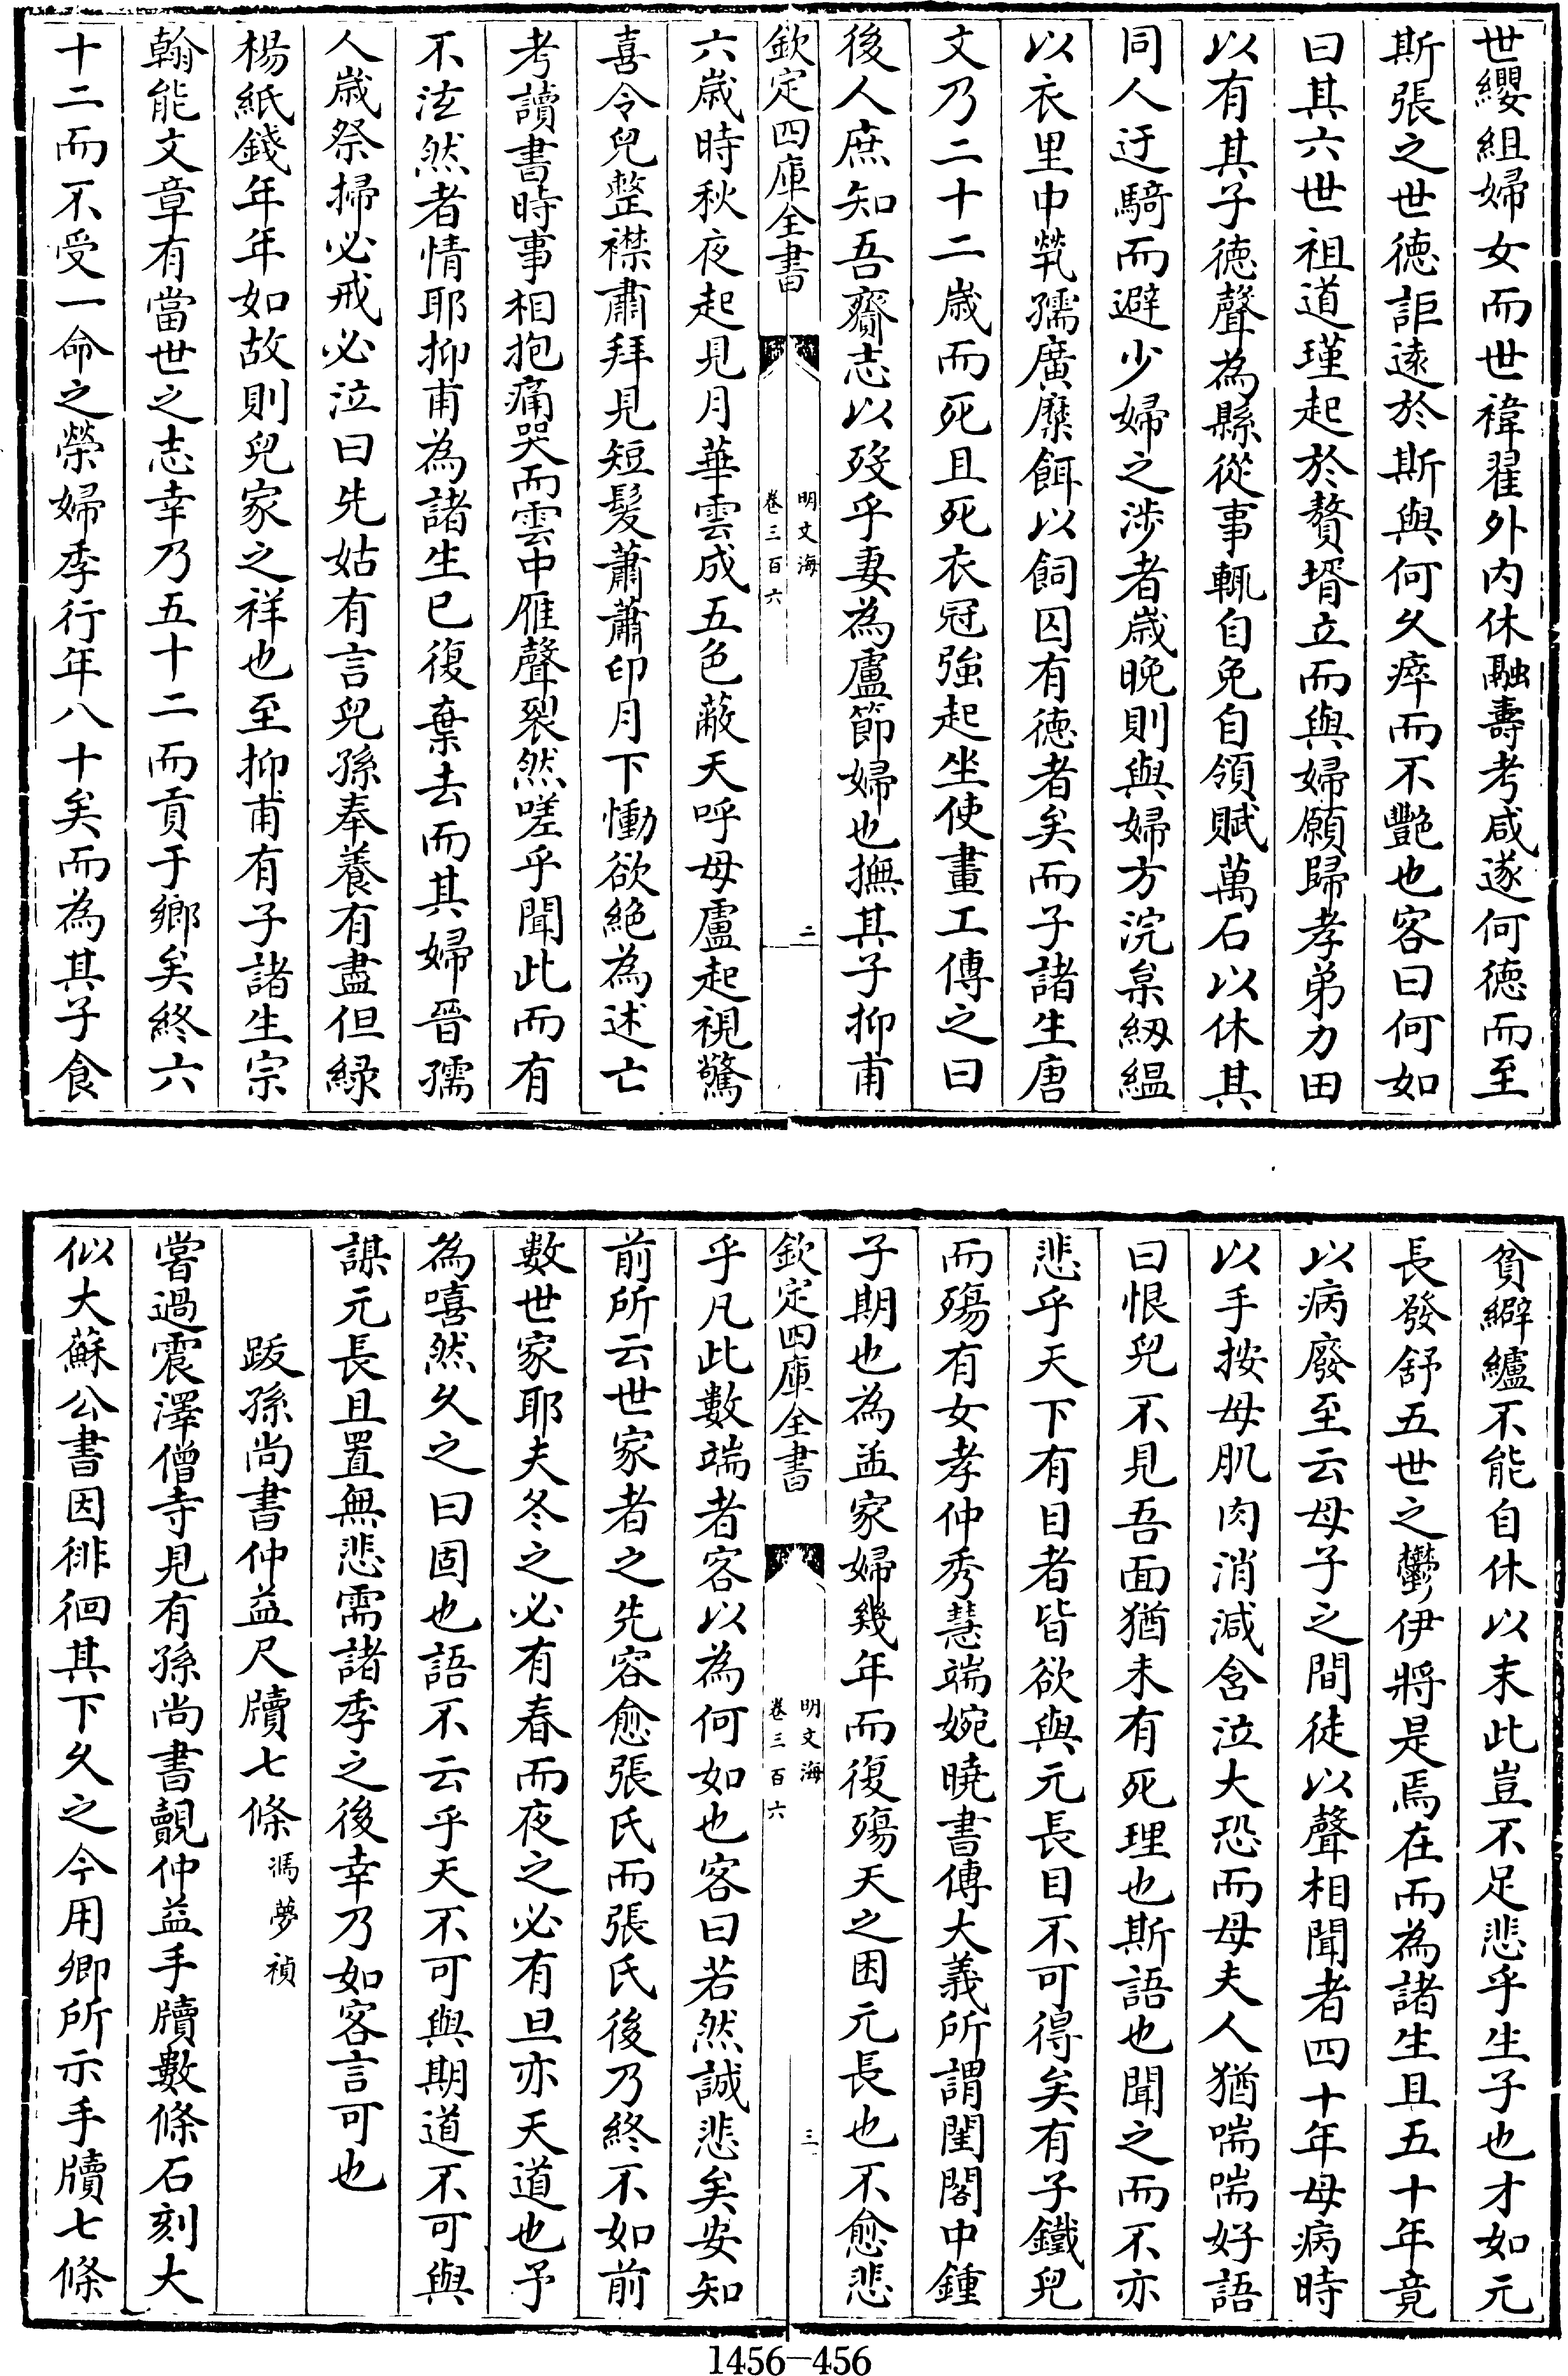 世纓組婦女而世褘翟外内休融壽考咸遂何德而至
斯張之世德詎遠於斯與何久瘁而不艷也客曰何如
曰其六世祖道瑾起於贅壻立而與婦願歸孝弟力田
以有其子德聲為縣從事輒自免自領賦萬石以休其
同人迂騎而避少婦之渉者歳晚則與婦方浣枲紉緼
以衣里中煢孺廣糜餌以飼囚有德者矣而子諸生唐
文乃二十二歳而死且死衣冠強起坐使畫工傳之曰
後人庶知吾齎志以歿乎妻為盧節婦也撫其子抑甫
欽定四庫全書
明文海
卷三百六
二
六歳時秋夜起見月華雲成五色蔽天呼母盧起視驚
喜令兒整襟肅拜見短髮蕭蕭印月下慟欲絶為述亡
考讀書時事相抱痛哭而雲中雁聲裂然嗟乎聞此而有
不泫然者情耶抑甫為諸生已復棄去而其婦晉孺
人歳祭掃必戒必泣曰先姑有言兒孫奉養有盡但緑
楊紙錢年年如故則兒家之祥也至抑甫有子諸生宗
翰能文章有當世之志幸乃五十二而貢于鄉矣終六
十二而不受一命之榮婦季行年八十矣而為其子食
貧纑不能自休以末此豈不足悲乎生子也才如元
長發舒五世之鬱伊將是焉在而為諸生且五十年竟
以病廢至云母子之間徒以聲相聞者四十年母病時
以手按母肌肉消減含泣大恐而母夫人猶喘喘好語
曰恨兒不見吾面猶未有死理也斯語也聞之而不亦
悲乎天下有目者皆欲與元長目不可得矣有子鐵兒
而殤有女孝仲秀慧端婉曉書傳大義所謂閨閣中鍾
子期也為孟家婦幾年而復殤天之困元長也不愈悲
欽定四庫全書
明文海
卷三百六
三
乎凡此數端者客以為何如也客曰若然誠悲矣安知
前所云世家者之先容愈張氏而張氏後乃終不如前
數世家耶夫冬之必有春而夜之必有旦亦天道也予
為嘻然久之曰固也語不云乎天不可與期道不可與
謀元長且置無悲需諸季之後幸乃如客言可也
跋孫尚書仲益尺牘七條 馮夢禎
嘗過震澤僧寺見有孫尚書覿仲益手牘數條石刻大
似大蘇公書因徘徊其下久之今用卿所示手牘七條
1456-456